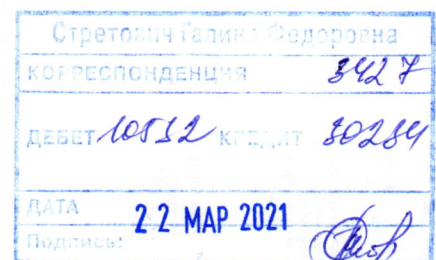 Стретович Галина Федоровна
КОРРЕСПОНДЕНЦИЯ 3427
ДЕБЕТ 10532 КРЕДИТ 30284
ДАТА 22 МАР 2021
Подпись: